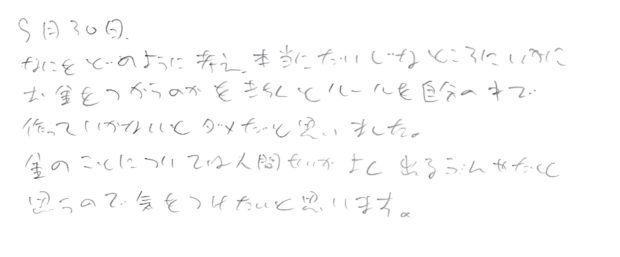 9月30日.
なにをどのように考え、本当にたいじなところにいかに
お金をつかうのかをきちんとルールを自分の中で
作っていかないとダメだと思いました。
金のことについては人間せいがよく出るぶんやだと
思うので気をつけたいと思います。